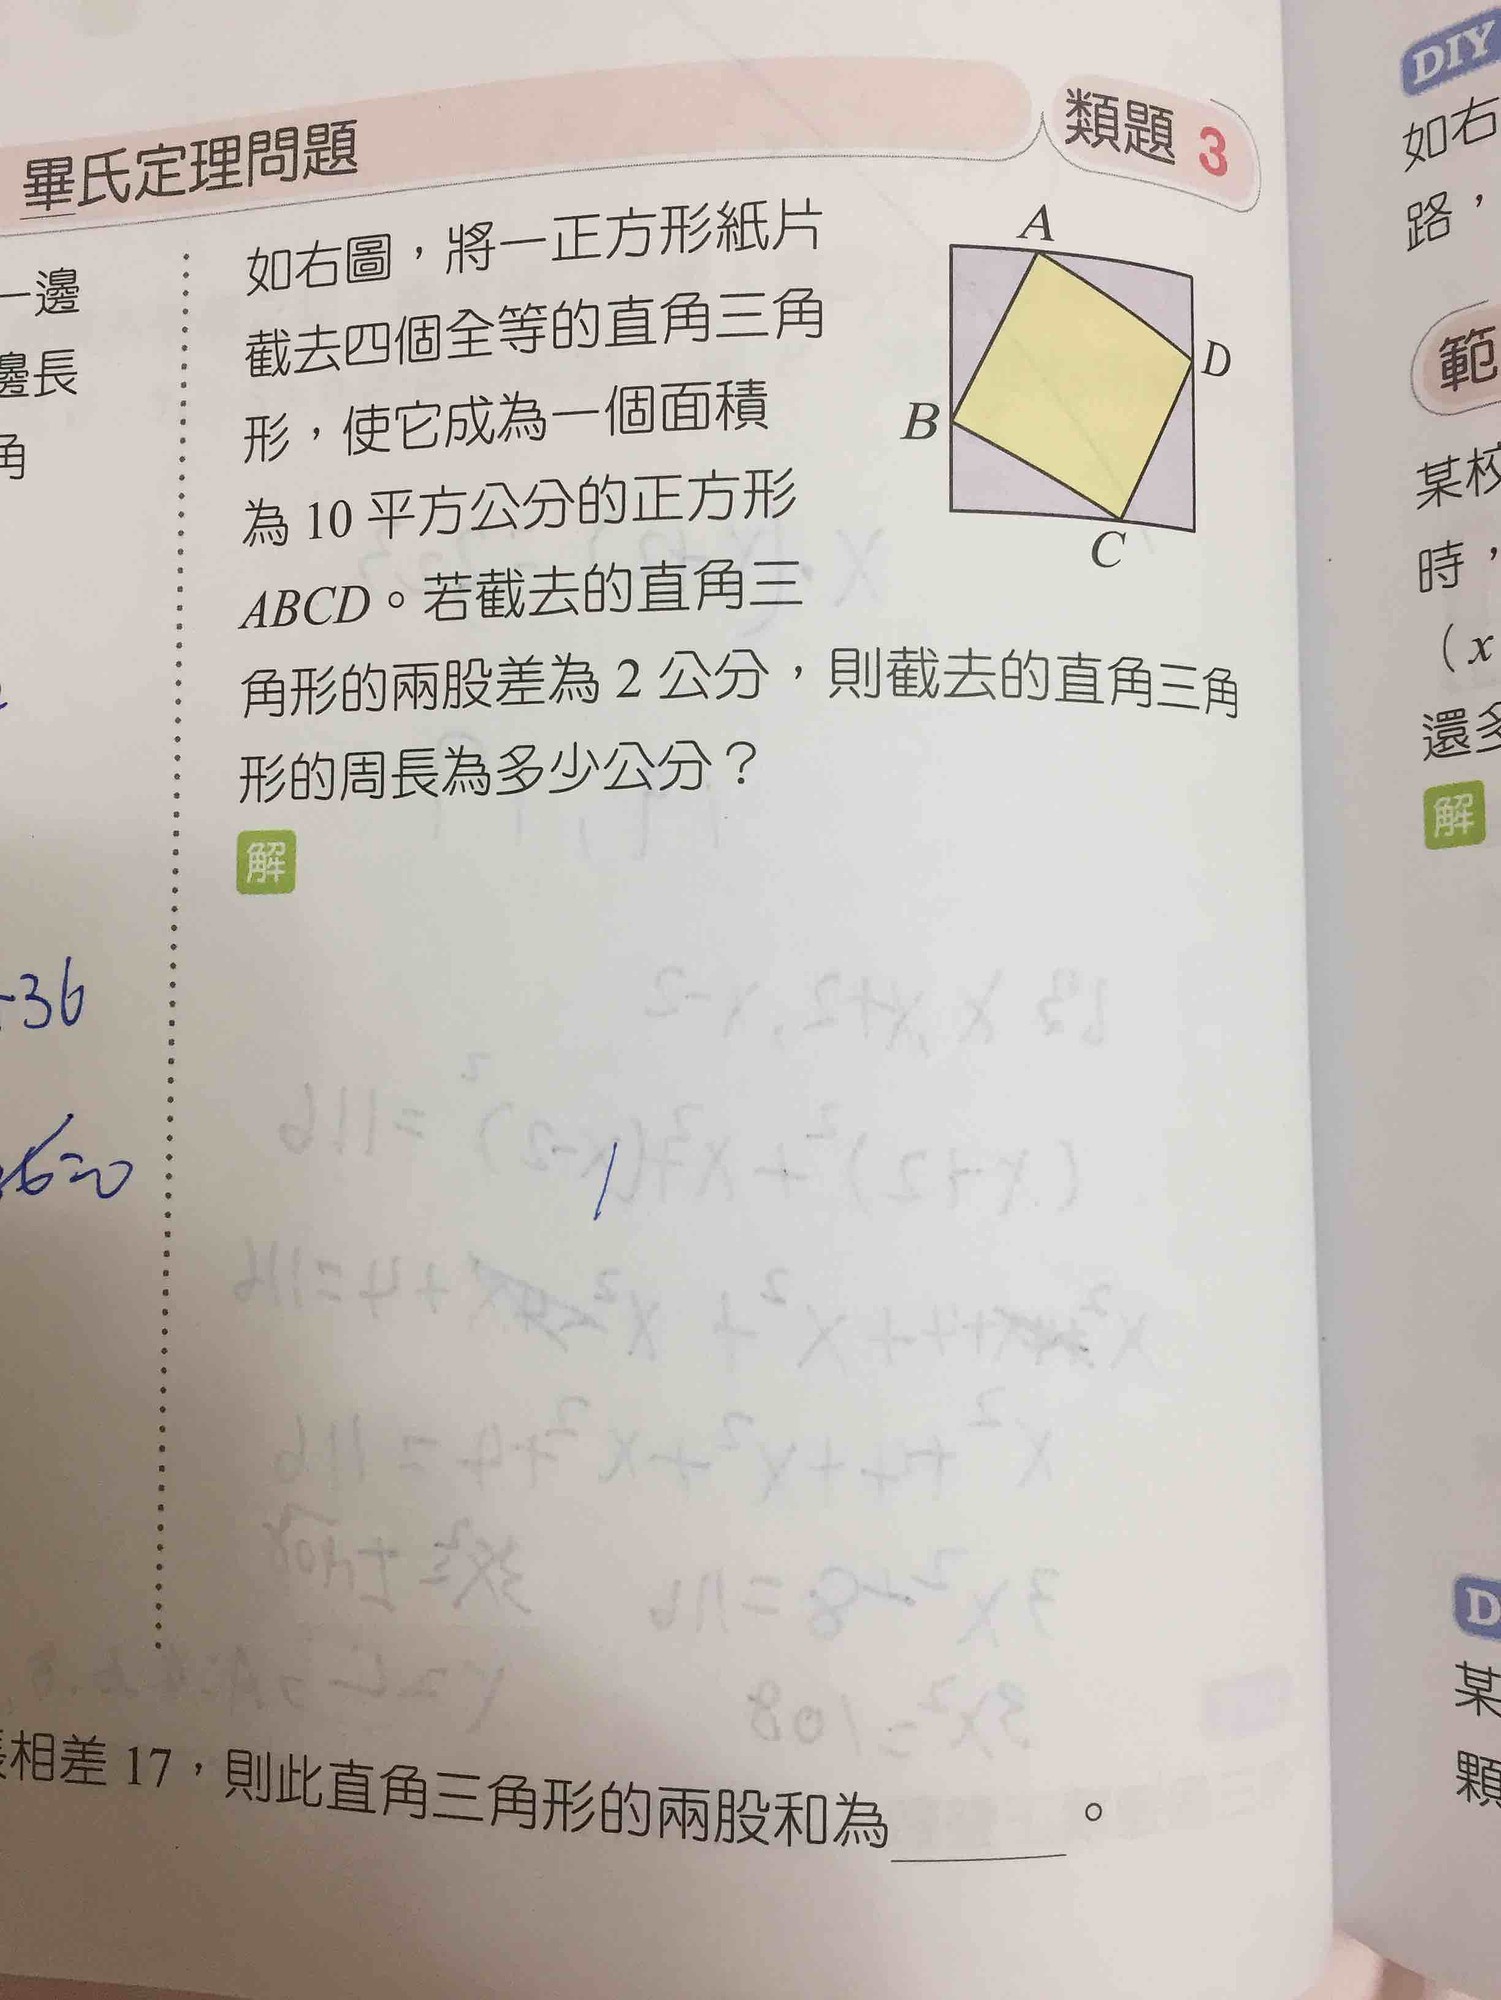 畢氏定理問題
類題 3
一邊
邊長
角
如右圖，將一正方形紙片
截去四個全等的直角三角
形，使它成為一個面積
為 10 平方公分的正方形
ABCD。若截去的直角三
角形的兩股差為 2 公分，則截去的直角三角
形的周長為多少公分？
A
B
C
D
解
-36
6=0
相差 17，則此直角三角形的兩股和為 。
DIY
如右
路，
範
某校
時，
（x
還多
解
D
某
顆